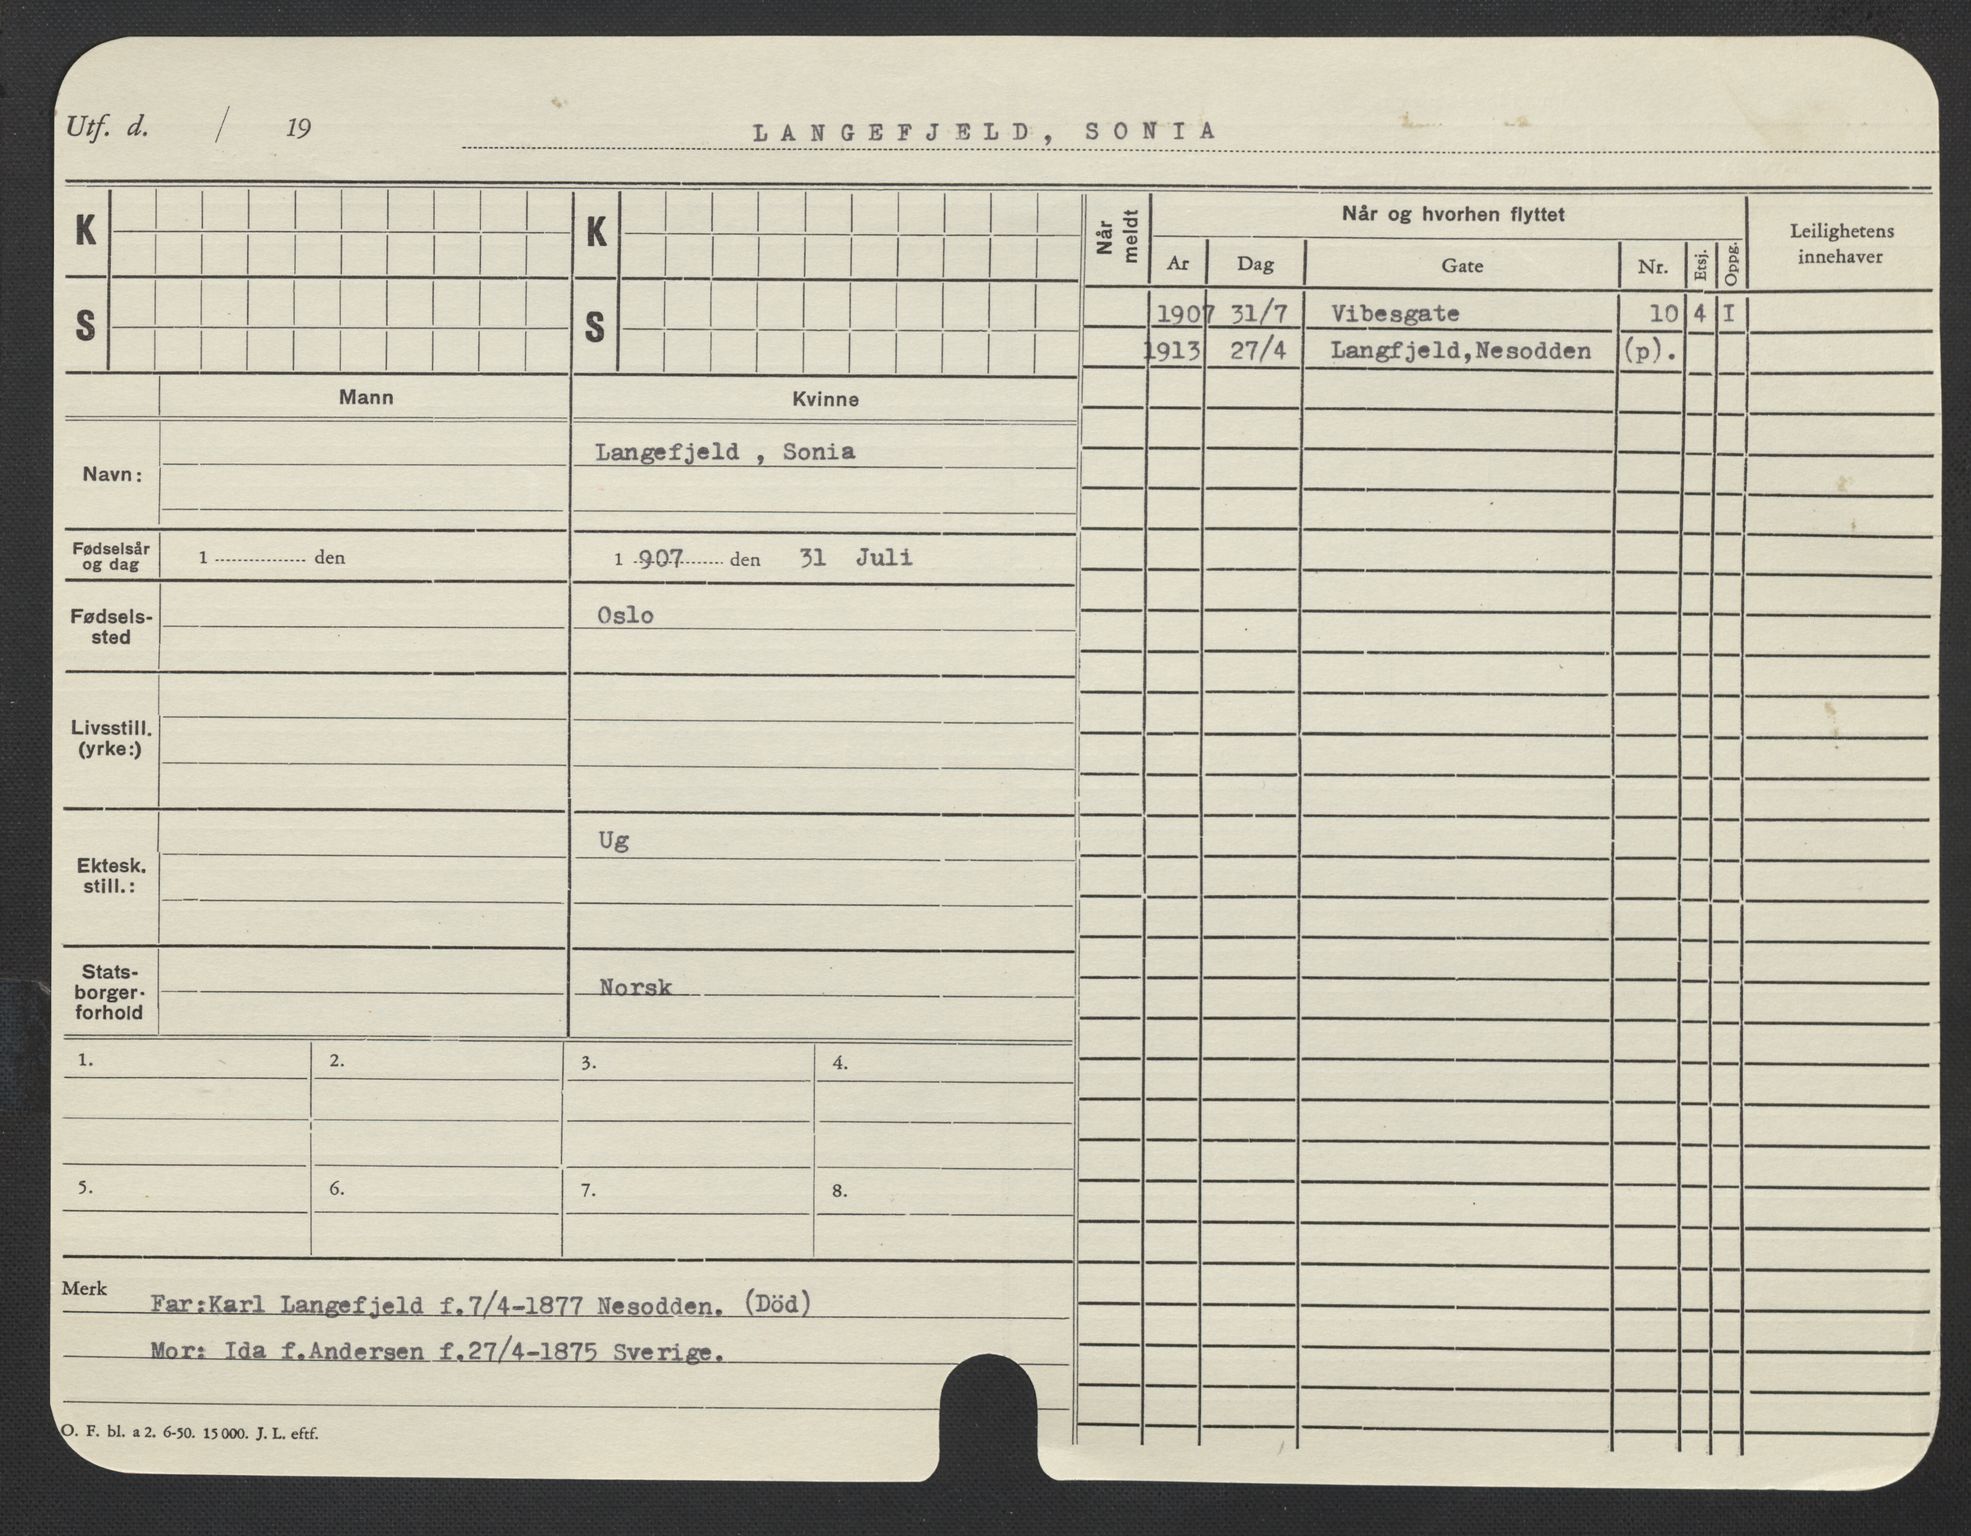 Utf. d. / 19
LANGEFJELD, SONIA
K
K
S
S
Mann
Kvinne
Navn:
Langefjeld , Sonia
Fødselsår og dag
1 ............... den
1 907 ........ den 31 Juli
Fødsels-
sted
Oslo
Livsstill.
(yrke:)
Ektesk.
still.:
Ug
Stats-
borger-
forhold
Norsk
1. 2. 3. 4.
5. 6. 7. 8.
Merk
Far:Karl Langefjeld f.7/4-1877 Nesodden. (Död)
Mor: Ida f.Andersen f.27/4-1875 Sverige.
O. F. bl. a 2. 6-50. 15 000. J. L. eftf.
Når meldt
Når og hvorhen flyttet
Leilighetens
innehaver
Ar Dag Gate Nr. Etsj. Oppg.
1907 31/7 Vibesgate 10 4 I
1913 27/4 Langfjeld,Nesodden (p).